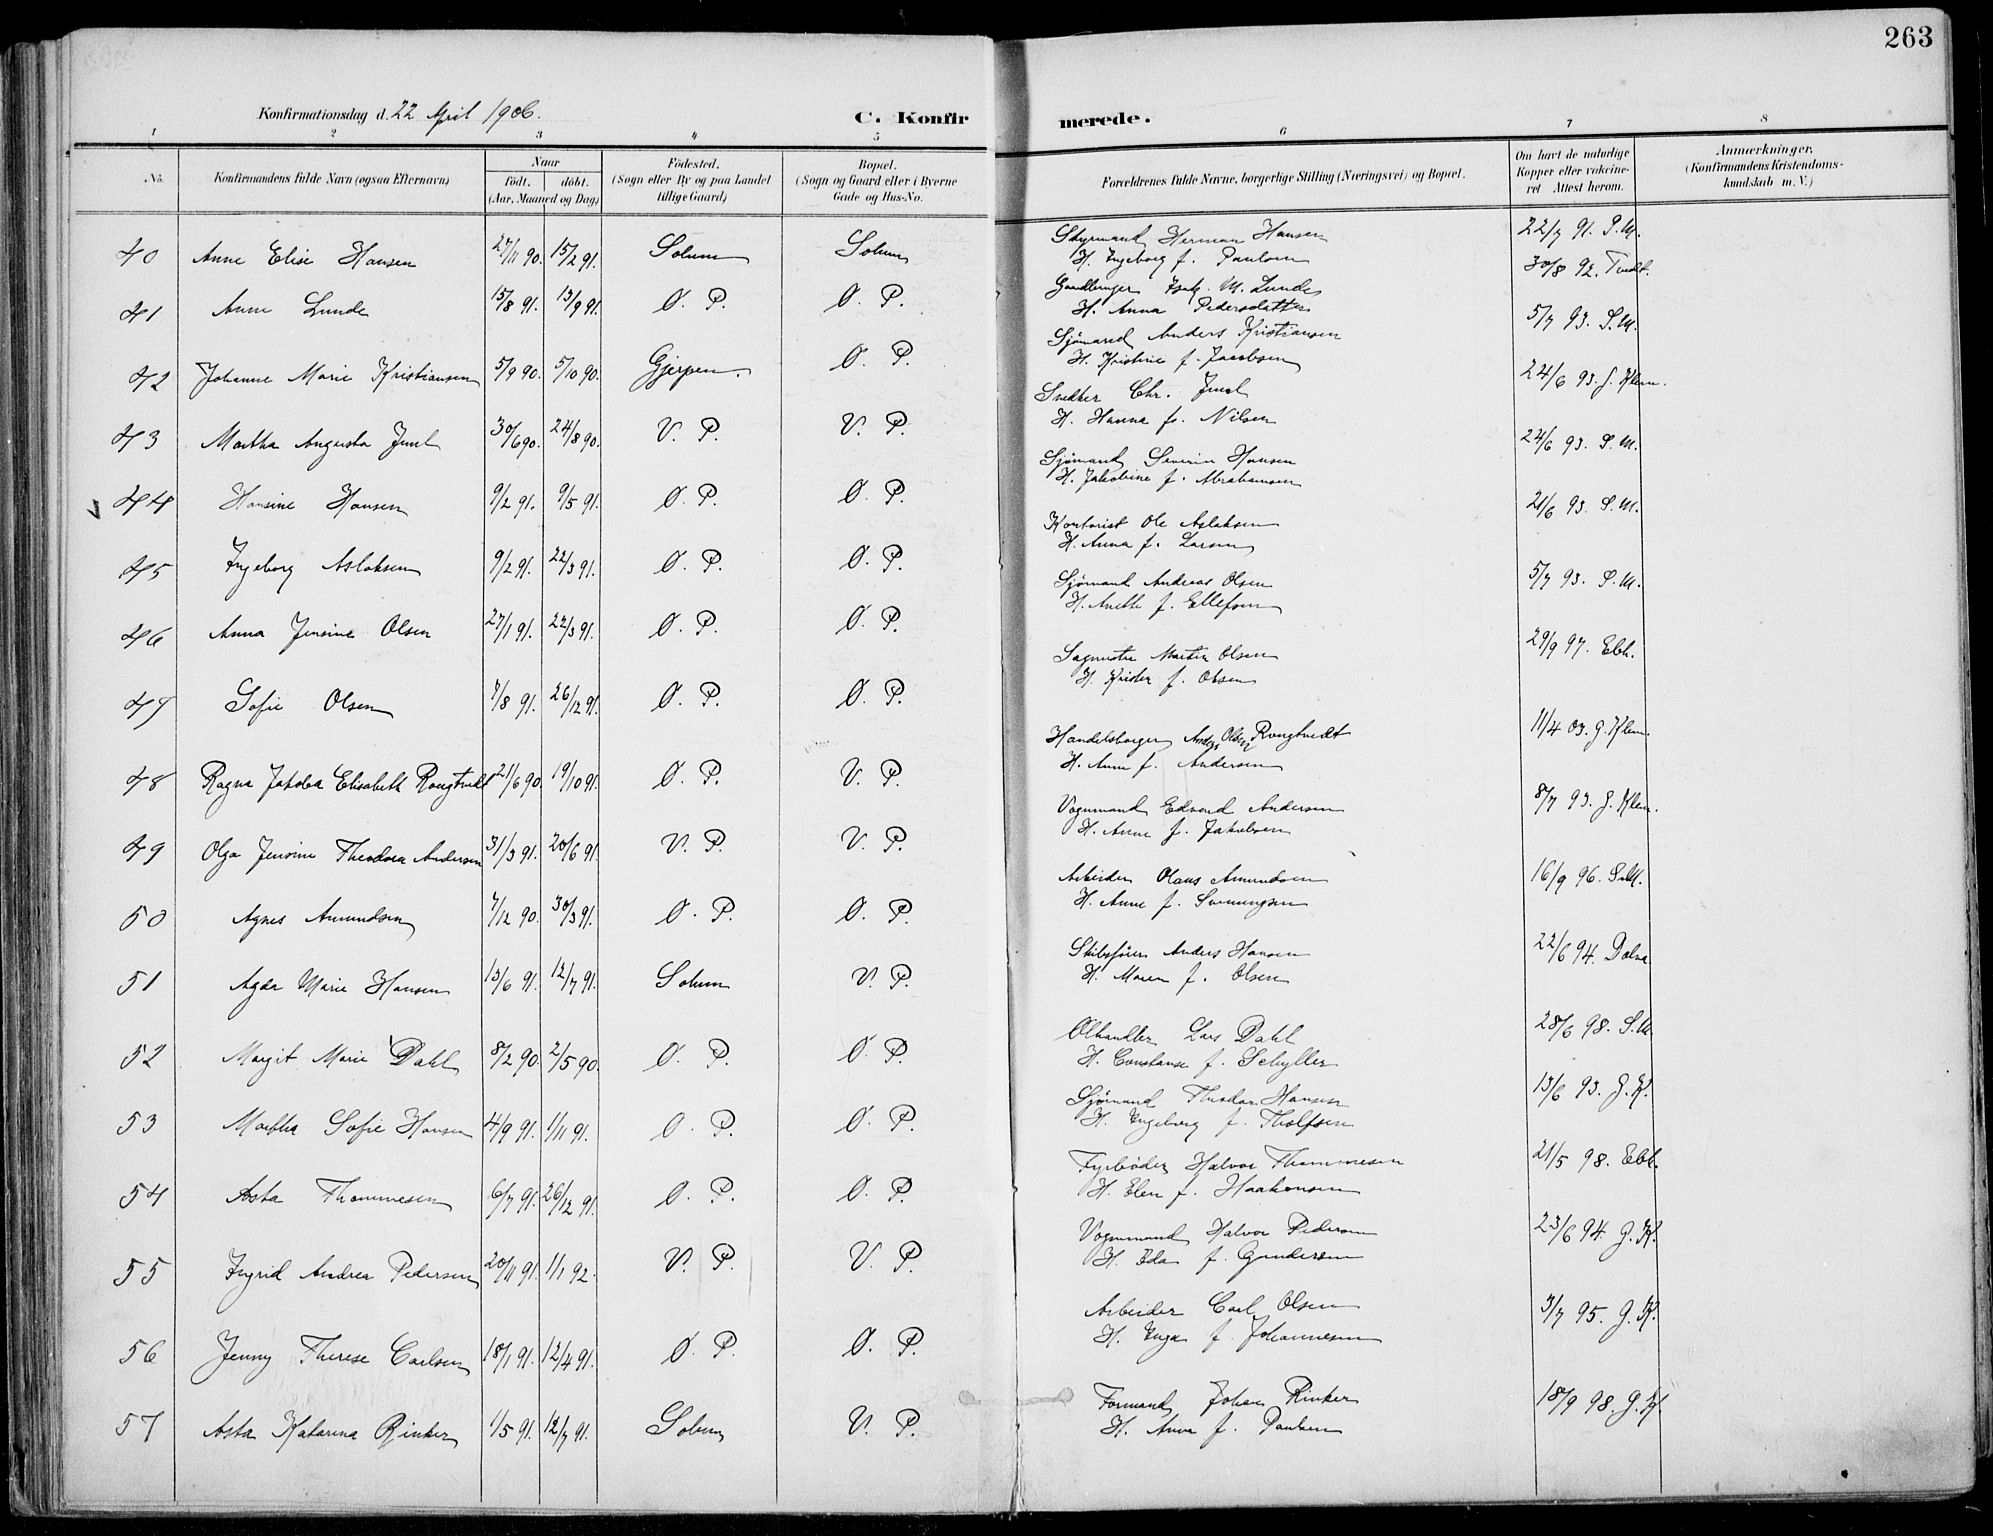 263
Konfirmationsdag d. 22 April 1906.
C. Konfirmerede.
1 2 3 4 5 6 7 8
No. | Konfirmandens fulde Navn (ogsaa Efternavn) | Naar født. | døbt. (Aar, Maaned og Dag) | Födested. (Sogn eller By og paa Landet tillige Gaard) | Bopæl. (Sogn og Gaard eller i Byerne Gade og Hus-No. | Forældrenes fulde Navne, borgerlige Stilling (Næringsvei) og Bopæl. | Om havt de naturlige Kopper eller vakcineret Attest herom. | Anmærkninger. (Konfirmandens Kristendomskundskab m. V.)
40 Anne Elise Hansen 27/11 90. 15/2 91. Solum Solum Styrmand Herman Hansen 22/7 91. S.M.
H. Ingeborg f. Paulsen
41 Anne Lunde 15/8 91. 13/9 91. Ø. P. Ø. P. M. Lunde 30/8 92.
H. Anna Pedersdatter
42 Johanne Marie Kristiansen 5/9 90. 5/10 90. Gjerpen. Ø. P. Sjömand Anders Kristiansen 5/7 93. S.M.
H. Kristine f. Jacobsen
43 Martha Augusta Juul 30/6 90. 24/8 90. V. P. V. P. Snedker Chr. Juul 24/6 93. J. Klem.
H. Hanna f. Nilsen
44 Hansine Hansen 9/2 91. 9/5 91. Ø. P. Ø. P. Sjömand Severin Hansen 24/6 93. S.M.
H. Jakobine f. Abrahamsen
45 Ingeborg Aslaksen 9/2 91. 22/3 91. Ø. P. Ø. P. Kontorist Ole Aslaksen 21/6 93. S.M.
H. Anna f. Larsen
46 Anna Jensine Olsen 27/1 91. 22/3 91. Ø. P. Ø. P. Sjømand Andreas Olsen 5/7 93. S.M.
H. Anette f. Ellefsen
47 Sofie Olsen 7/8 91. 26/12 91. Ø. P. Ø. P. Sagmester Martin Olsen 29/9 97. Ebh.
H. f. Olsen
48 Ragna Jakobea Elisabeth Rougtvedt 21/6 90. 19/10 91. Ø. P. V. P. Handelsborger Anders Olsen Rougtvedt 11/4 03. J. Klem.
H. Anne f. Andersen
49 Olga Jensine Theodora Andersen 31/3 91. 20/6 91. V. P. V. P. Vognmand Edvard Andersen 8/7 93. J. Klem.
H. Anne f. Jakobsen
50 Agnes Amundsen 7/12 90. 30/3 91. Ø. P. Ø. P. Arbeider Olaus Amundsen 16/9 96. S.M.
H. Anne f. Svenungsen
51 Agda Marie Hansen 13/6 91. 12/7 91. Solum V. P. Skibsfører Anders Hansen 22/6 94.
H. Maren f. Olsen
52 Margit Marie Dahl 8/2 90. 2/5 90. Ø. P. Ø. P. Ølhandler Lars Dahl 28/6 98. S.M.
H. Constanse f. Schyller
53 Martha Sofie Hansen 4/9 91. 1/11 91. Ø. P. Ø. P. Sjømand Theodor Hansen 13/6 93. J. K.
H. Ingeborg f. Tholfsen
54 Asta Thommesen 6/7 91. 26/12 91. Ø. P. Ø. P. Fyrbøder Halvor Thommesen 21/5 98. Ebh.
H. Elen f. Haakonsen
55 Ingrid Andrea Pedersen 20/11 91. 1/1 92. V. P. V. P. Vognmand Halvor Pedersen 23/6 94. J. K.
H. Ida f. Gundersen
56 Jenny Therese Carlsen 18/1 91. 12/4 91. Ø. P. Ø. P. Arbeider Carl Olsen 3/7 95. J. K.
H. Inga f. Johannesen
57 Asta Katarina Rinker 1/5 91. 12/7 91. Solum V. P. Formand Johan Rinker 18/9 98. J. K.
H. Anna f. Paulsen